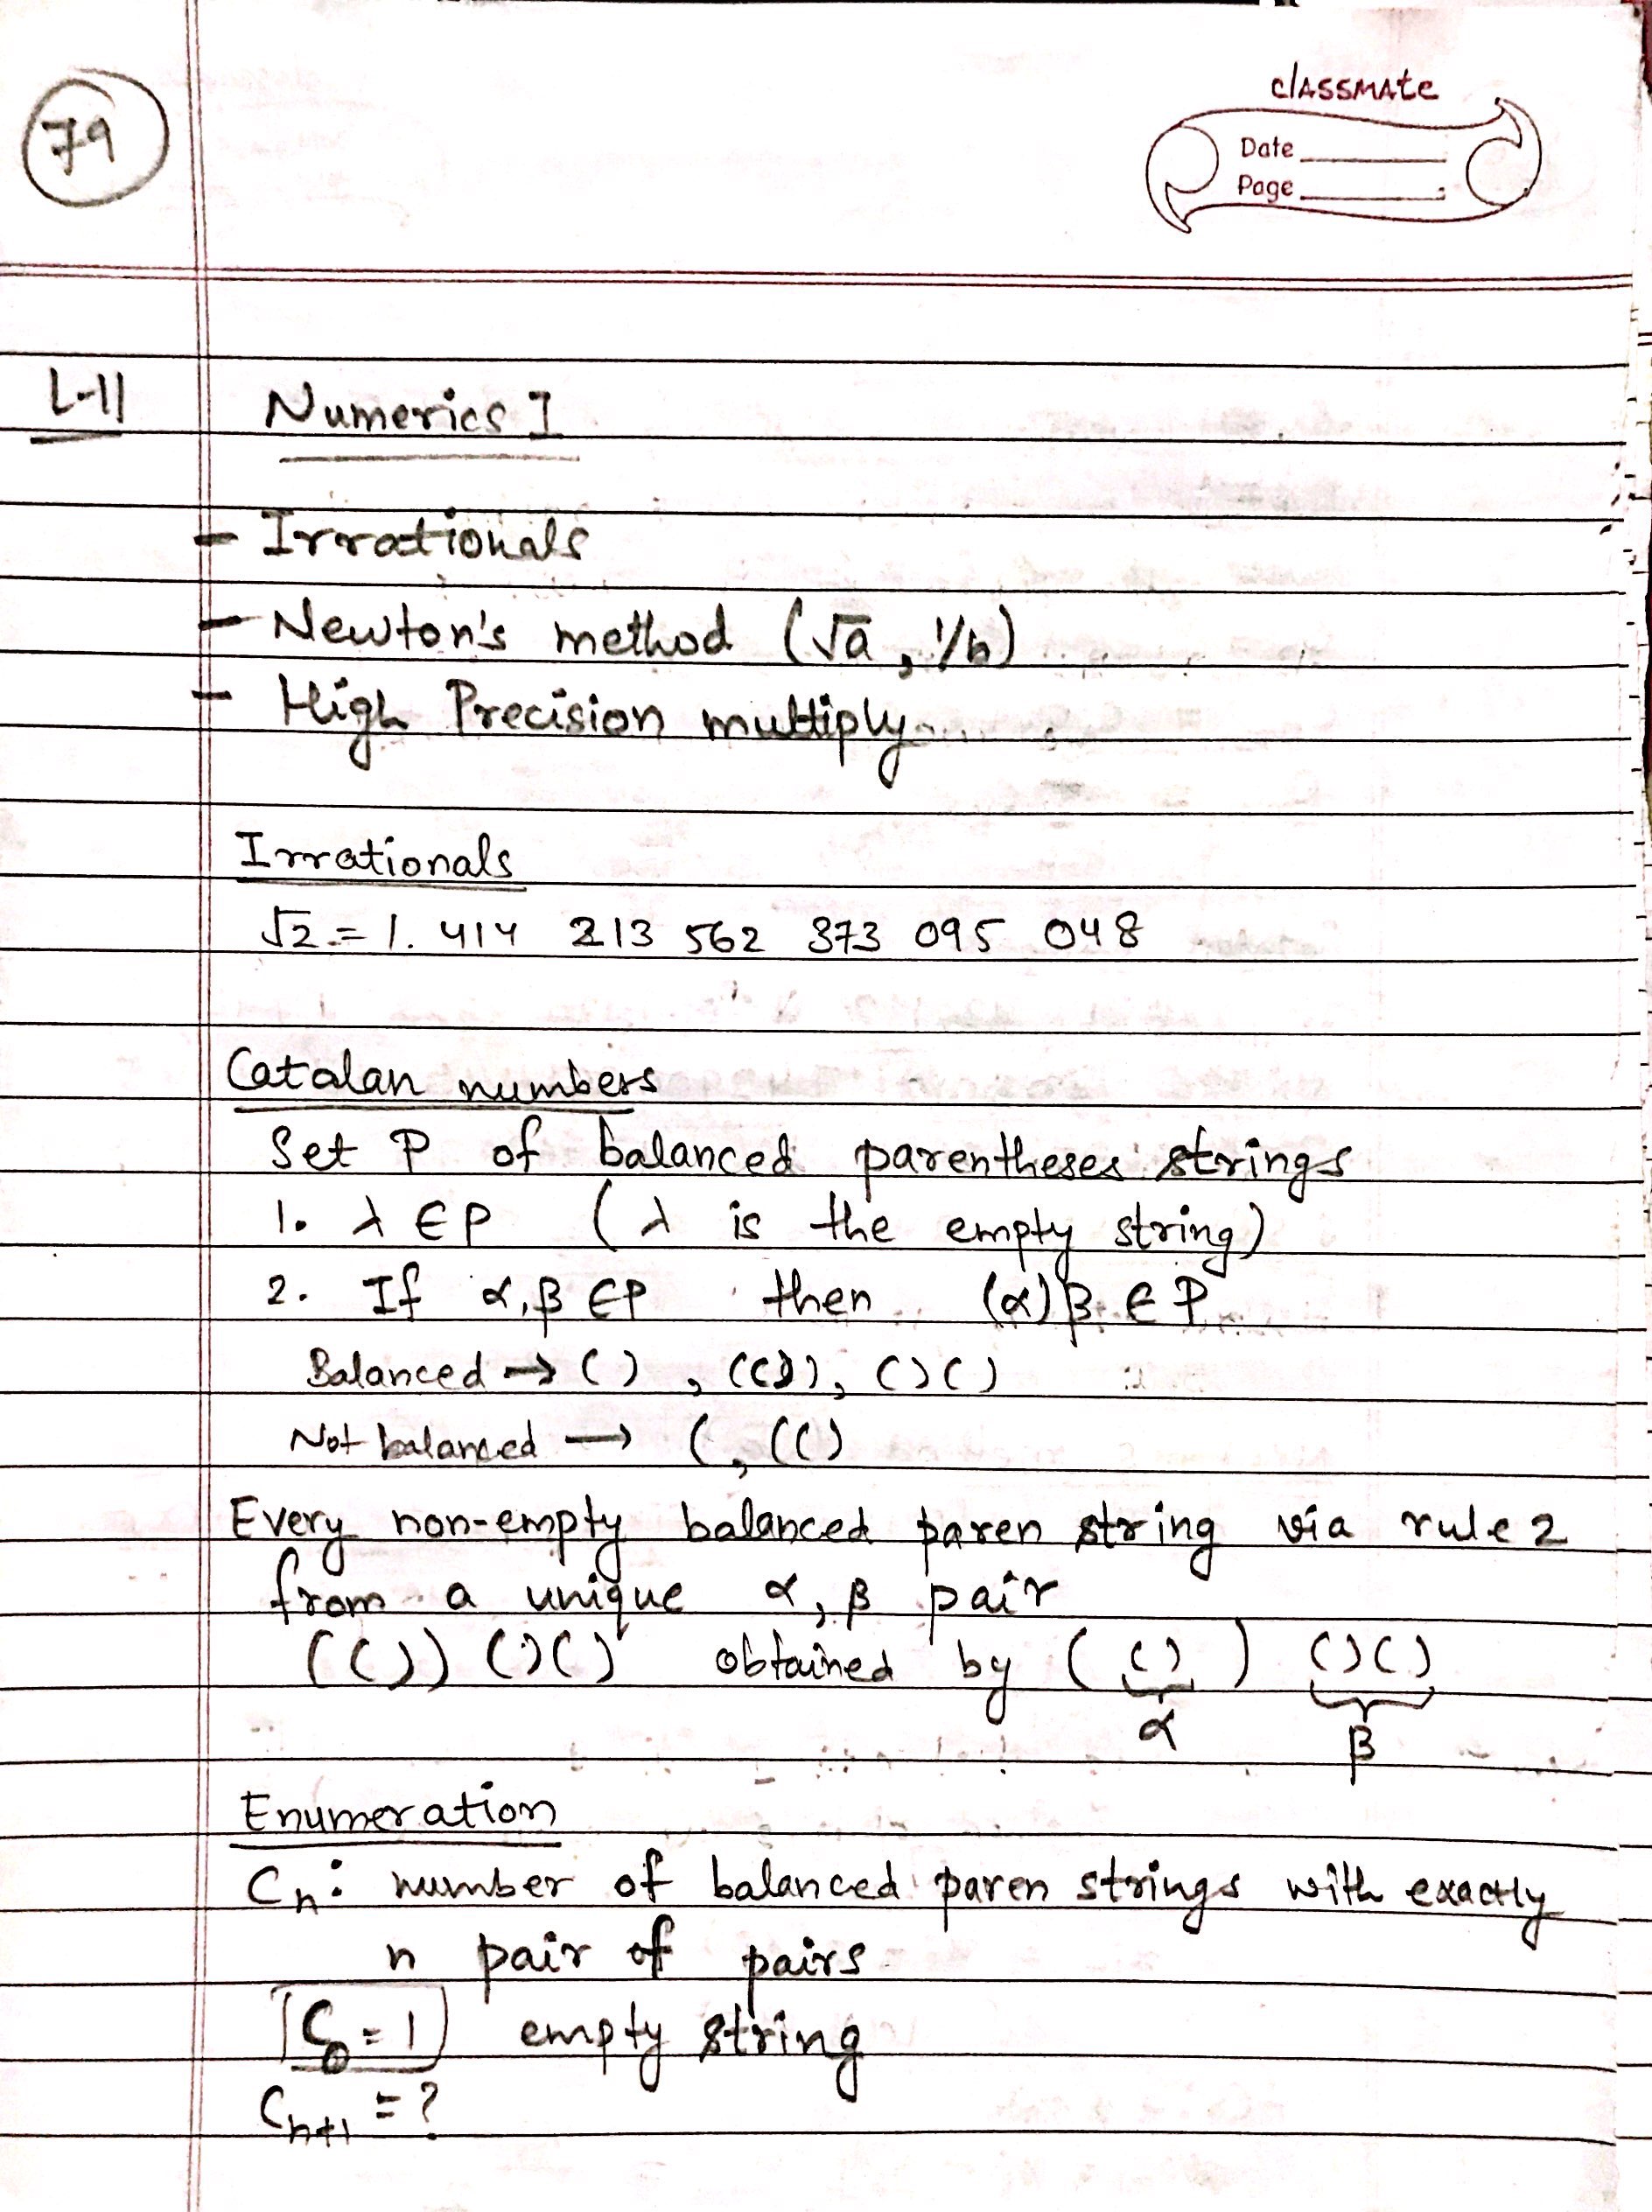 79
classmate
Date
Page
L-11 Numerics I
- Irrationals
- Newton's method (√a, 1/b)
- High Precision multiply
Irrationals
√2 = 1. 414 213 562 373 095 048
Catalan numbers
Set P of balanced parentheses strings
1. λ ∈ P (λ is the empty string)
2. If α, β ∈ P then (α)β ∈ P
Balanced → (), (()), ()()
Not balanced → (, (()
Every non-empty balanced paren string via rule 2
from a unique α, β pair
(())()() obtained by (()) ()()
α β
Enumeration
Cn: number of balanced paren strings with exactly
n pair of pairs
C0 = 1 empty string
Cn+1 = ?